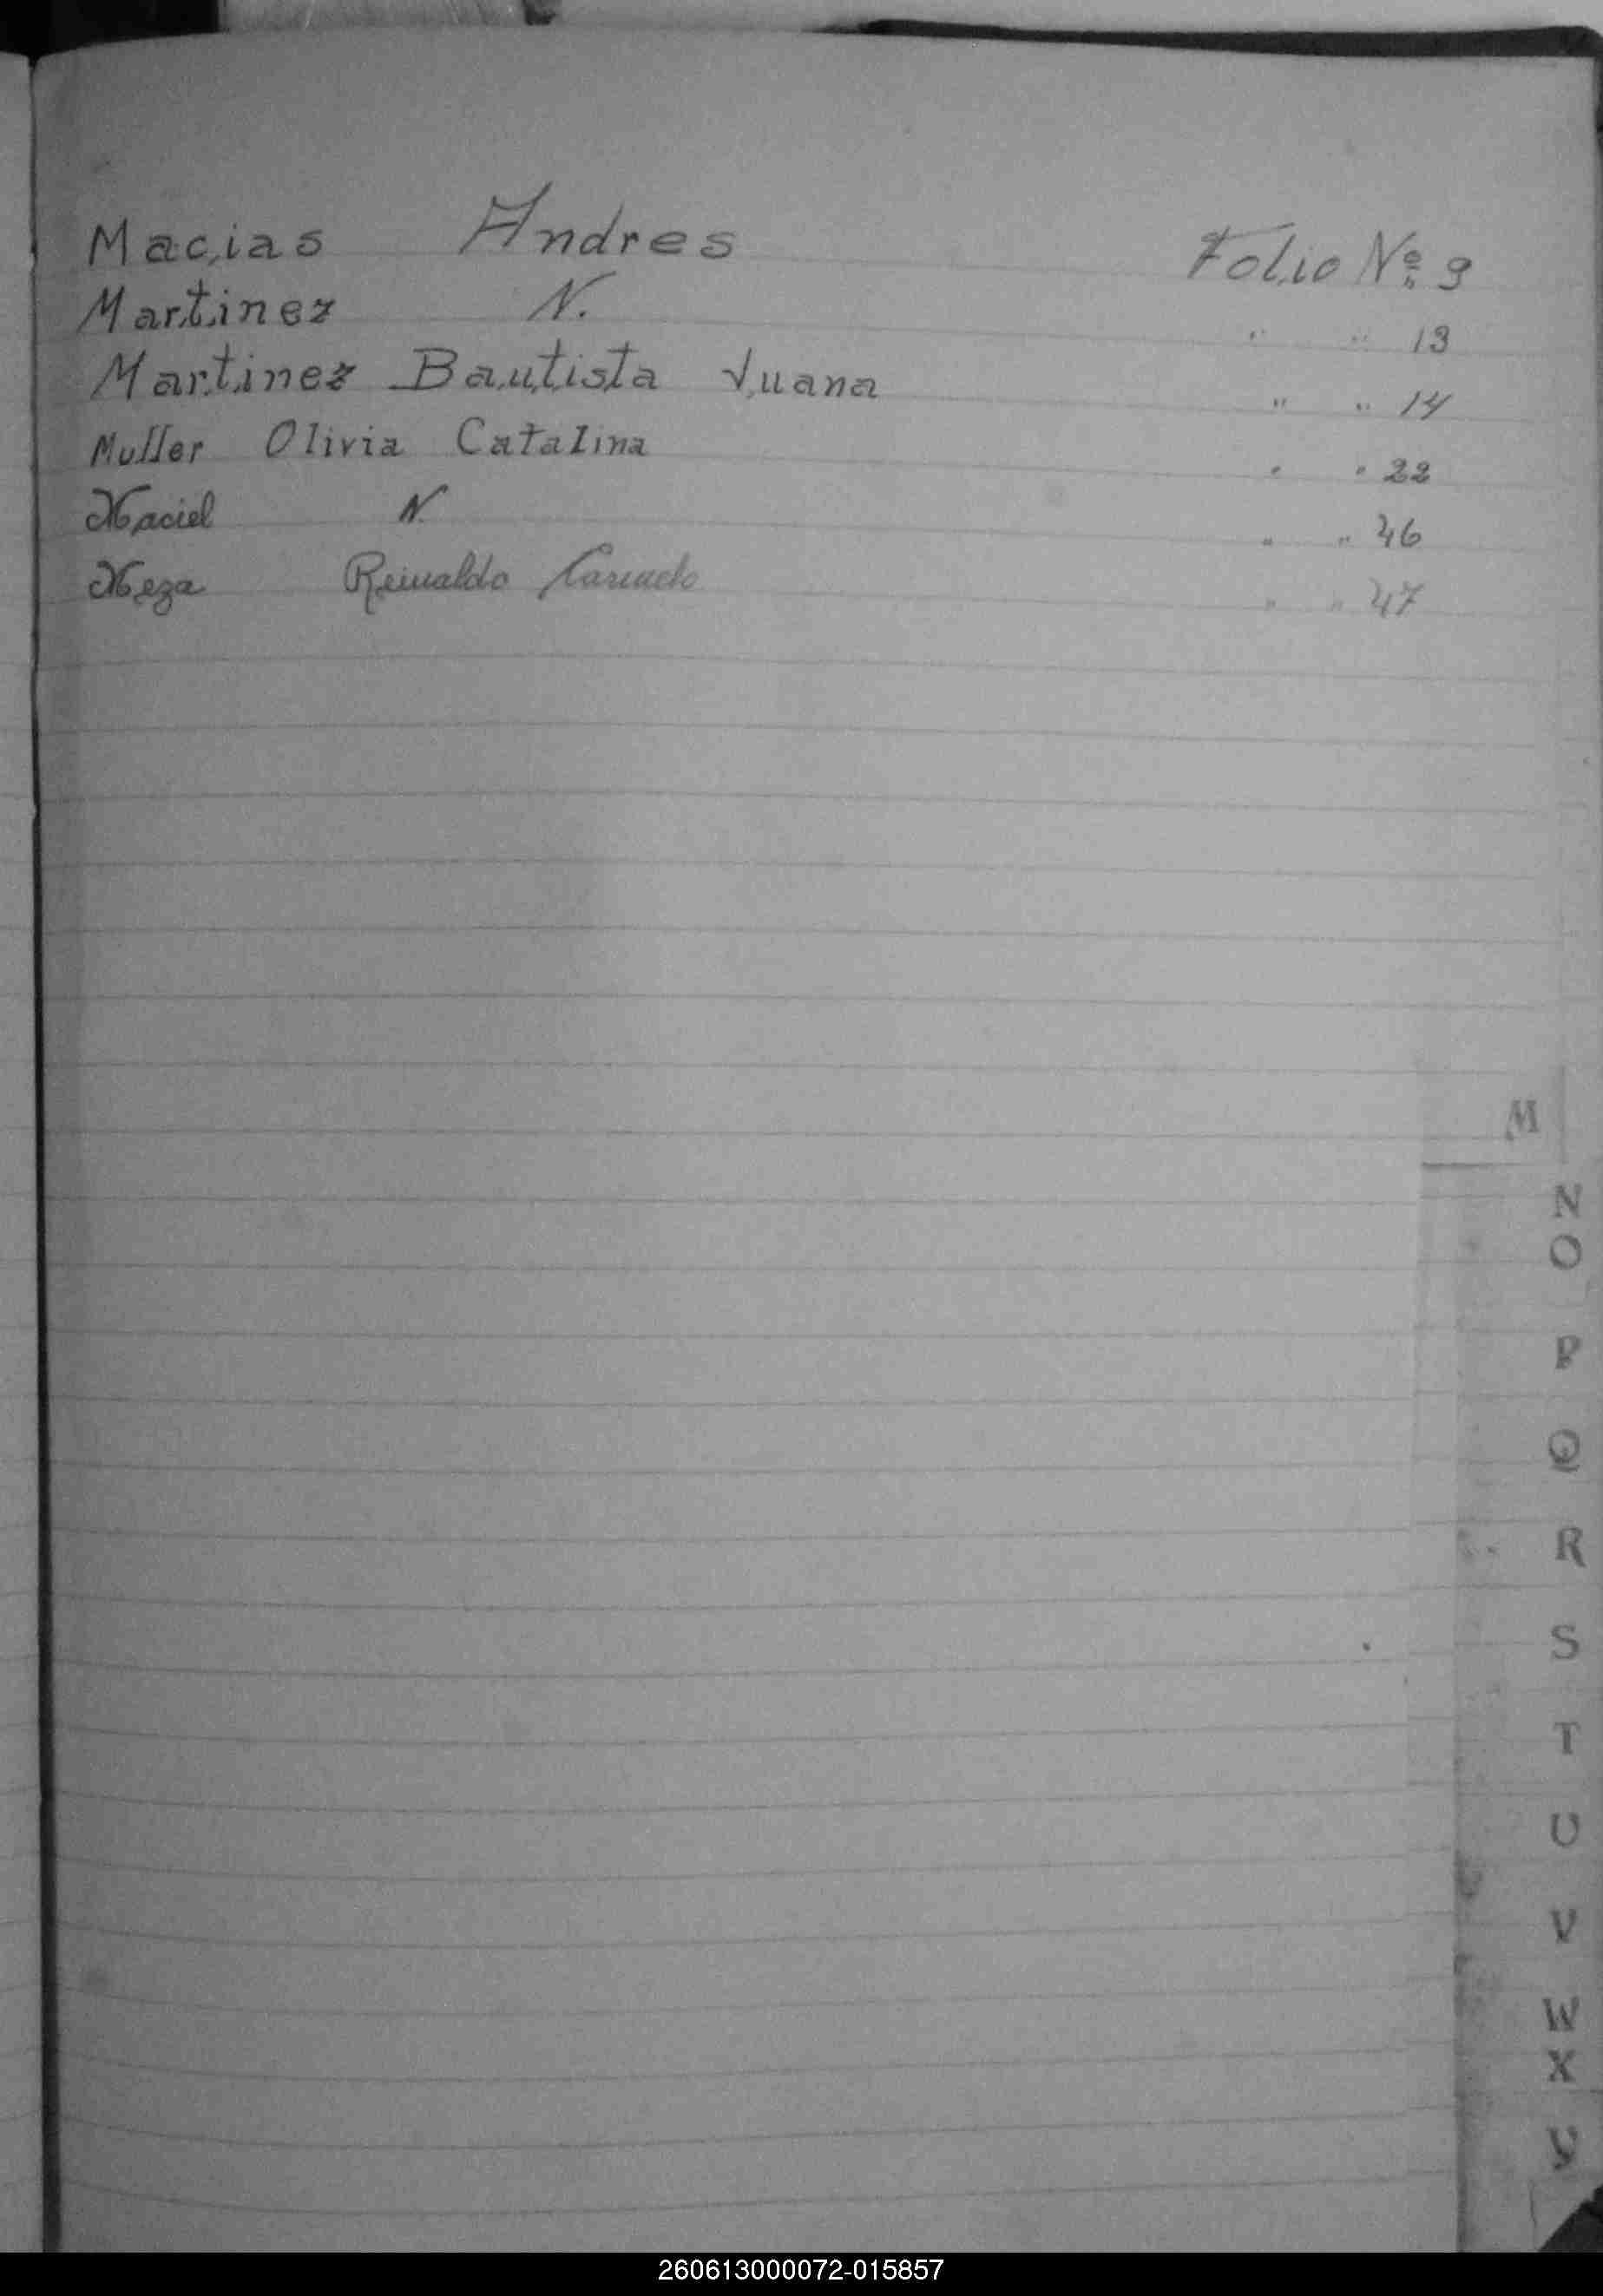 Macias Andres Folio Nº 9
Martinez N. " " 13
Martinez Bautista Juana " " 14
Muller Olivia Catalina " " 22
Maciel N. " " 46
Meza Reinaldo " " 47
M
N
O
P
Q
R
S
T
U
V
W
X
Y
260613000072-015857